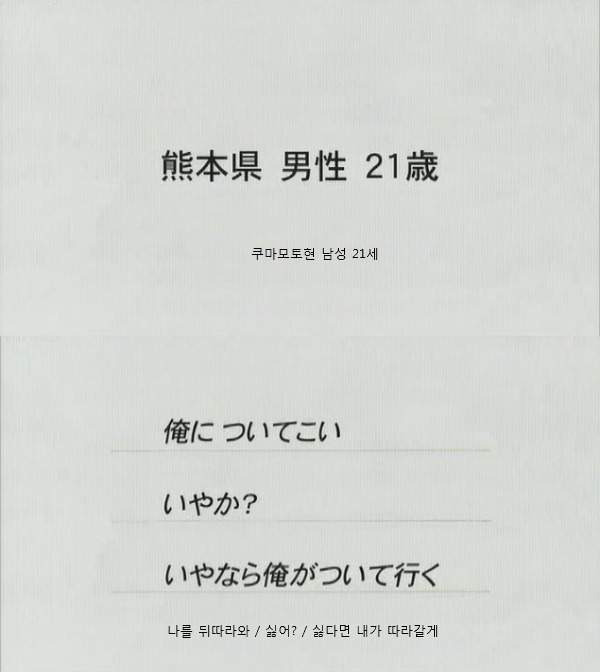 熊本県 男性 21歳
쿠마모토현 남성 21세
俺に ついてこい
いやか?
いやなら俺がついて行く
나를 뒤따라와 / 싫어? / 싫다면 내가 따라갈게